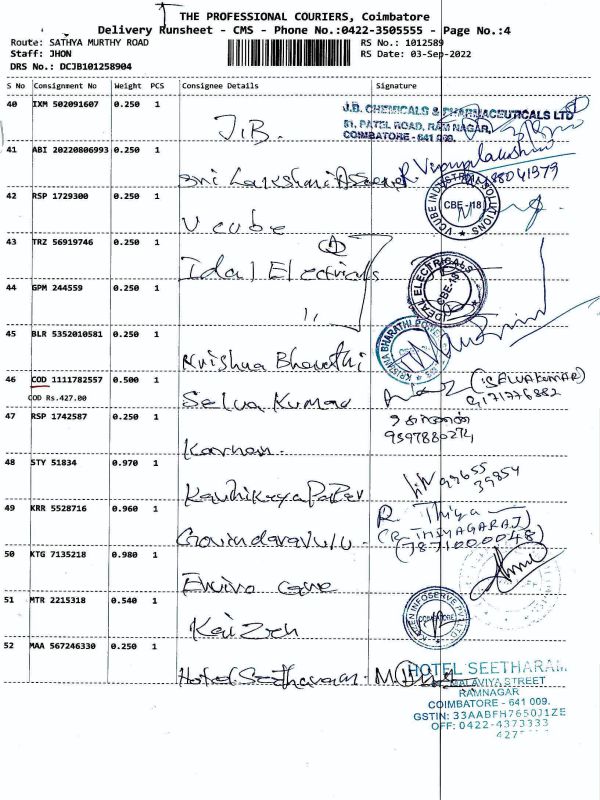 THE PROFESSIONAL COURIERS, Coimbatore
Delivery Runsheet - CMS - Phone No.:0422-3505555 - Page No.:4
Route: SATHYA MURTHY ROAD
RS No.: 1012589
Staff: JHON
RS Date: 03-Sep-2022
DRS No.: DCJB101258904
S No Consignment No Weight PCS Consignee Details Signature
40 IXM 502091607 0.250 1
J.B.
J.B. CHEMICALS & PHARMACEUTICALS LTD
51, PATEL ROAD, RAM NAGAR,
COIMBATORE - 641 009.
41 ABI 20220806993 0.250 1
Sri Lakshmi
R. Vijayalakshmi
42 RSP 1729300 0.250 1
V cube
VCUBE INDUSTRIAL SOLUTIONS
CBE-18
43 TRZ 56919746 0.250 1
Idal Electricals
IDEAL ELECTRICALS
CBE-18
44 GPM 244559 0.250 1
"
45 BLR 5352010581 0.250 1
Krishna Bharathi
KRISHNA BHARATHI
46 COD 1111782557 0.500 1
COD Rs.427.00
Selva Kumar
(SELVAKUMAR)
9171776882
47 RSP 1742587 0.250 1
Karnan
9597880274
48 STY 51834 0.970 1
99655
39854
49 KRR 5528716 0.960 1
Govindaravulu
R. Thiya
(R-THIYAGARAJ)
(7871000048)
50 KTG 7135218 0.980 1
Enviro Care
51 MTR 2215318 0.540 1
Kaizen
KAIZEN INFOSERVE PVT LTD
COIMBATORE
52 MAA 567246330 0.250 1
Hotel Seetharam
HOTEL SEETHARAM
MALAVIYA STREET
RAMNAGAR
COIMBATORE - 641 009.
GSTIN: 33AABFH7650J1ZE
OFF: 0422-4373333